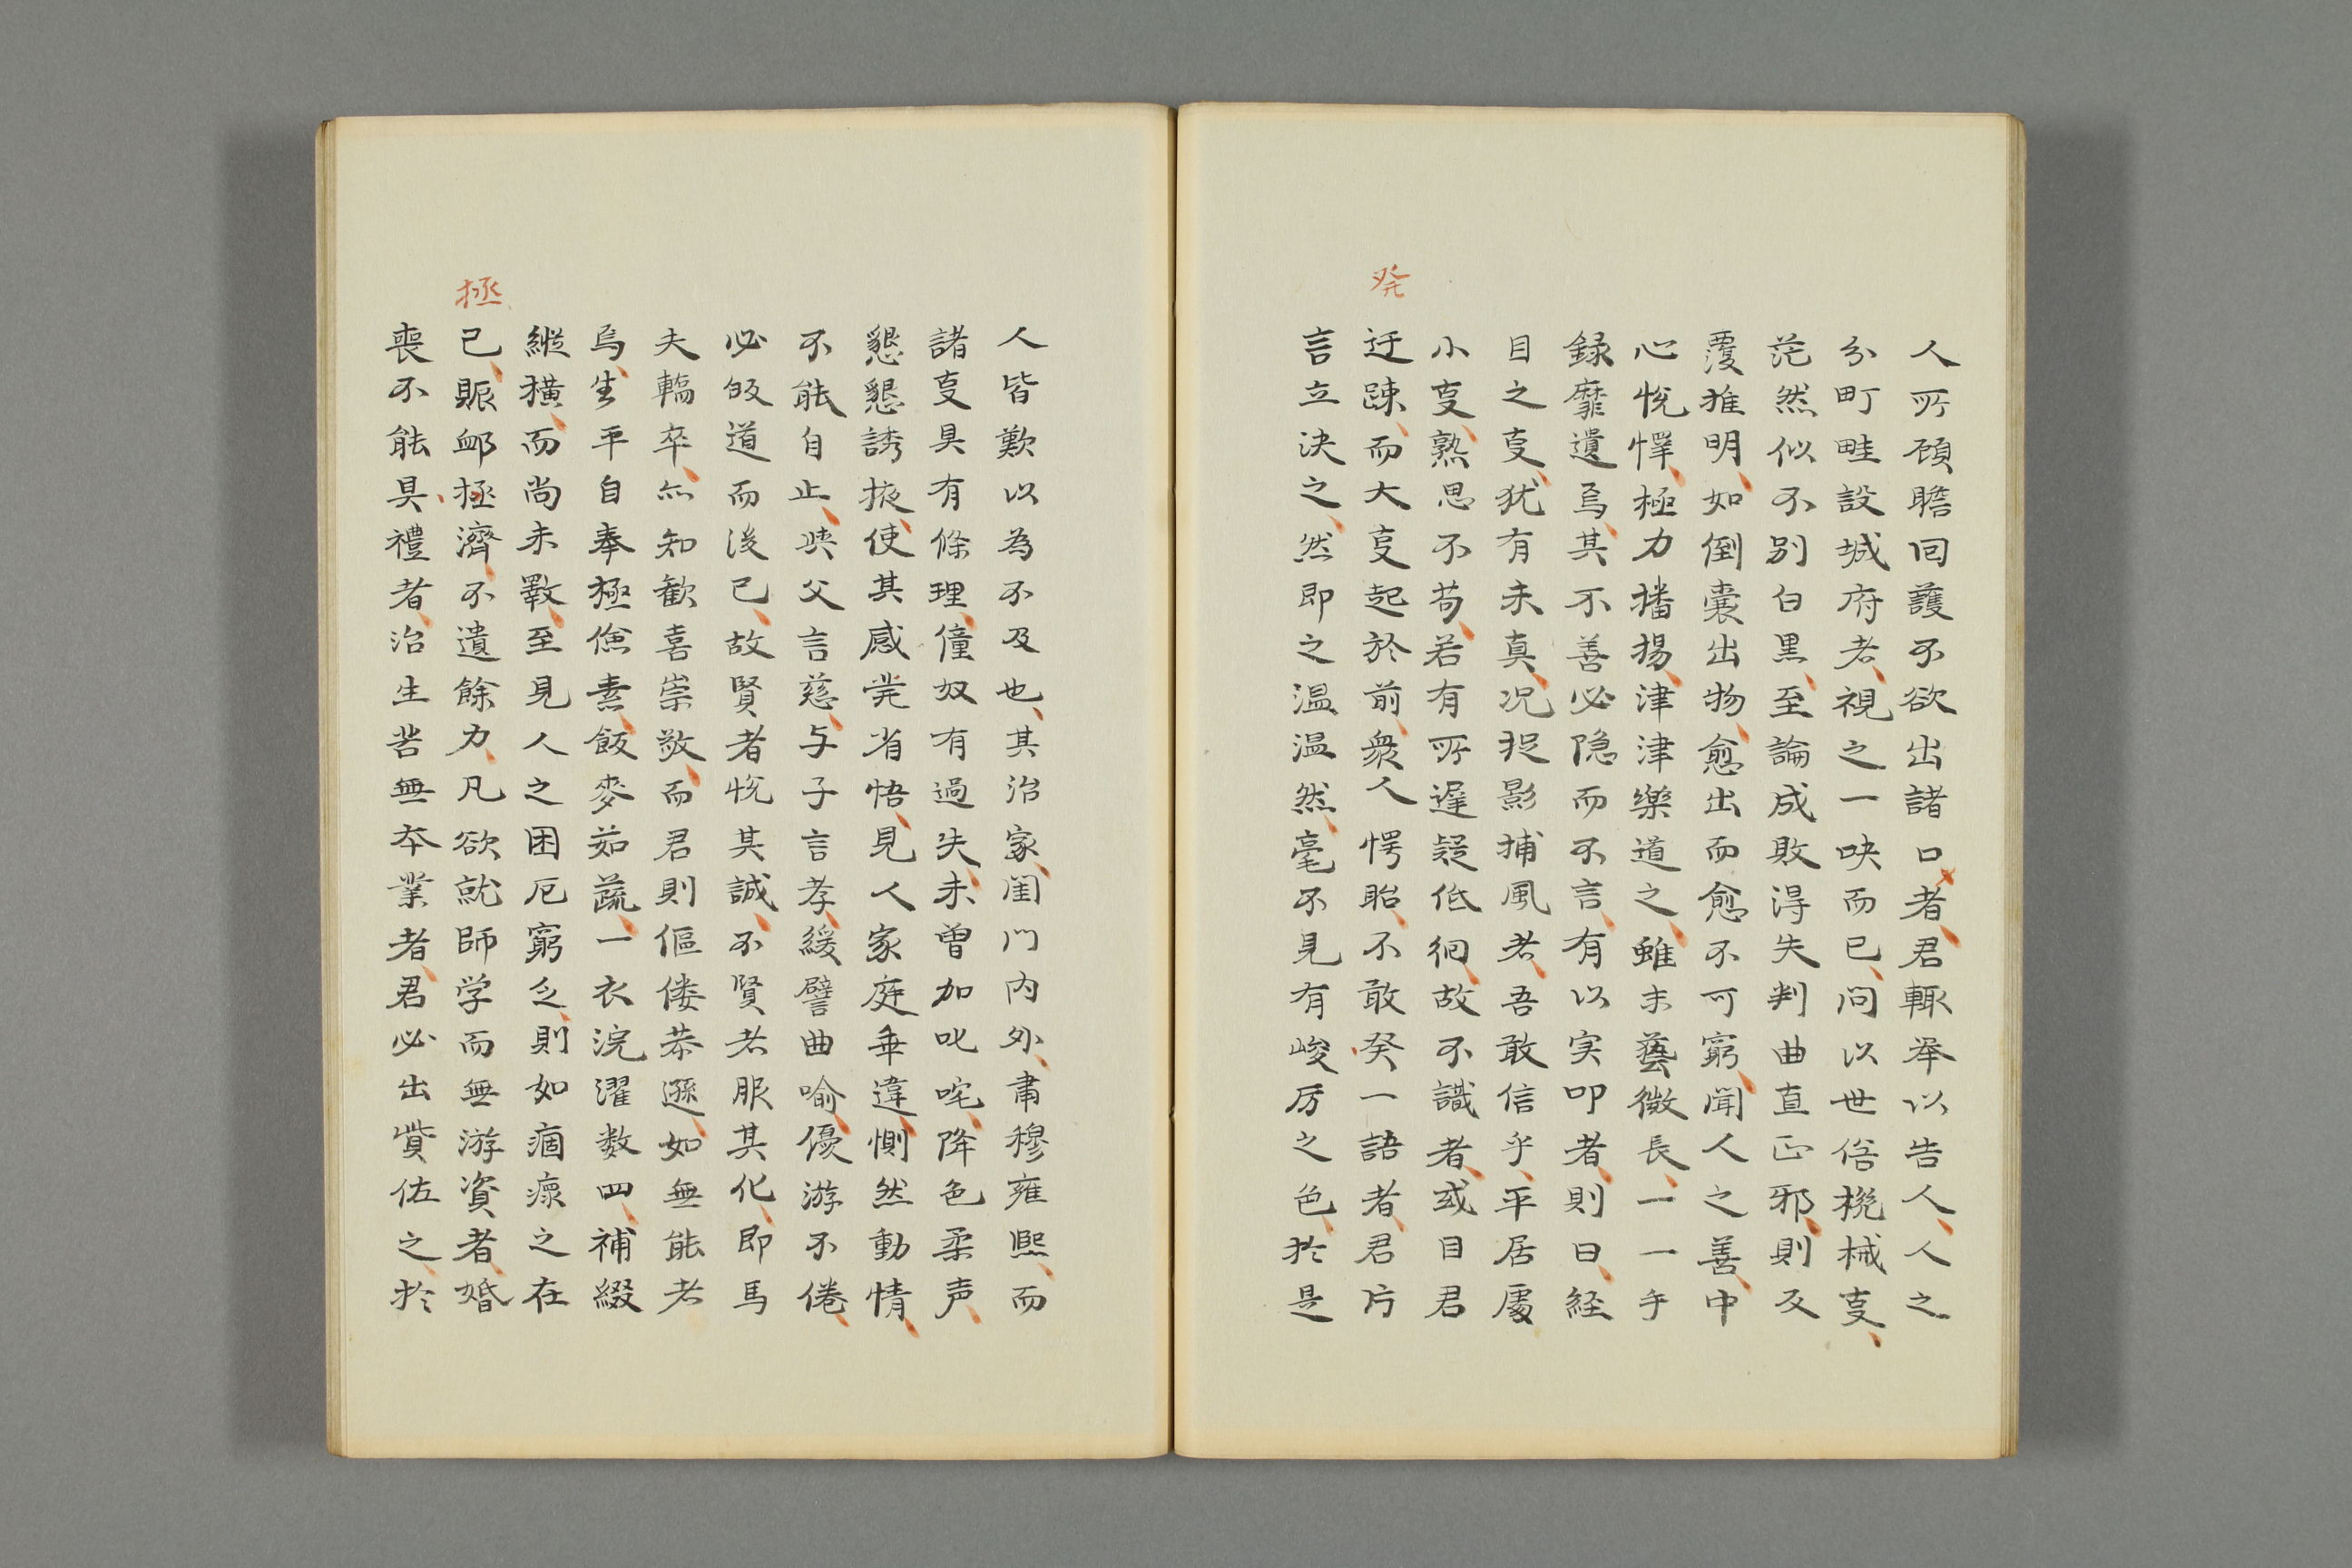 人所顧瞻回護不欲出諸口者君輙举以告人人之
分町畦設城府者視之一吷而已问以世俗機械叓
茫然似不别白黒至論成敗淂失判曲直正邪則反
覆推明如倒囊出物愈出而愈不可窮聞人之善中
心悦懌極力播揚津津樂道之雖末藝微長一一手
録靡遺焉其不善必隐而不言有以実叩者則曰経
目之叓犹有未真况捉影捕風者吾敢信乎平居處
小叓熟思不苟若有所遲疑低徊故不識者或目君
迂踈而大叓起於前衆人愕眙不敢癸一語者君片
言立决之然即之温温然毫不見有峻厉之色於是
発
人皆歎以為不及也其治家闺门内外肃穆雍熙而
諸叓具有條理僮奴有過失未曽加叱咤降色柔声
懇懇誘掖使其感発省悟見人家庭乖違惻然動情
不能自止与父言慈与子言孝緩譬曲喻優游不倦
必皈道而後已故賢者悦其誠不賢者服其化即馬
夫轎卒亦知歓喜崇敬而君則傴偻恭遜如無能者
焉生平自奉極儉素飯麥茹蔬一衣浣濯数四補綴
縱横而尚未斁至見人之困厄窮乏則如痼瘝之在
己賑邮拯濟不遺餘力凡欲就師学而無游資者婚
喪不能具禮者治生苦無夲業者君必出貲佐之於
拯